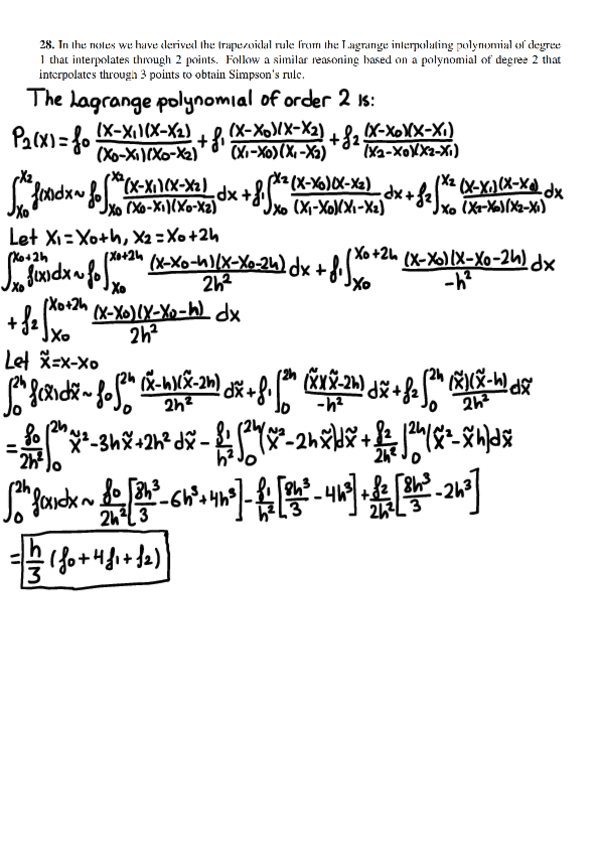 28. In the notes we have derived the trapezoidal rule from the Lagrange interpolating polynomial of degree
1 that interpolates through 2 points. Follow a similar reasoning based on a polynomial of degree 2 that
interpolates through 3 points to obtain Simpson's rule.
The Lagrange polynomial of order 2 is:
P₂(x) = f₀ (x-x₁)(x-x₂)/(x₀-x₁)(x₀-x₂) + f₁ (x-x₀)(x-x₂)/(x₁-x₀)(x₁-x₂) + f₂ (x-x₀)(x-x₁)/(x₂-x₀)(x₂-x₁)
∫_{x₀}^{x₂} f(x)dx ~ f₀ ∫_{x₀}^{x₂} (x-x₁)(x-x₂)/(x₀-x₁)(x₀-x₂) dx + f₁ ∫_{x₀}^{x₂} (x-x₀)(x-x₂)/(x₁-x₀)(x₁-x₂) dx + f₂ ∫_{x₀}^{x₂} (x-x₁)(x-x₀)/(x₂-x₀)(x₂-x₁) dx
Let x₁ = x₀+h, x₂ = x₀+2h
∫_{x₀}^{x₀+2h} f(x)dx ~ f₀ ∫_{x₀}^{x₀+2h} (x-x₀-h)(x-x₀-2h)/2h² dx + f₁ ∫_{x₀}^{x₀+2h} (x-x₀)(x-x₀-2h)/-h² dx
+ f₂ ∫_{x₀}^{x₀+2h} (x-x₀)(x-x₀-h)/2h² dx
Let x̃=x-x₀
∫_0^{2h} f(x̃)dx̃ ~ f₀ ∫_0^{2h} (x̃-h)(x̃-2h)/2h² dx̃ + f₁ ∫_0^{2h} (x̃)(x̃-2h)/-h² dx̃ + f₂ ∫_0^{2h} (x̃)(x̃-h)/2h² dx̃
= f₀/2h² ∫_0^{2h} x̃²-3hx̃+2h² dx̃ - f₁/h² ∫_0^{2h} (x̃²-2hx̃)dx̃ + f₂/2h² ∫_0^{2h} (x̃²-x̃h)dx̃
∫_0^{2h} f(x)dx ~ f₀/2h² [8h³/3 -6h³+4h³] - f₁/h² [8h³/3 -4h³] + f₂/2h² [8h³/3 -2h³]
= h/3 (f₀+4f₁+f₂)